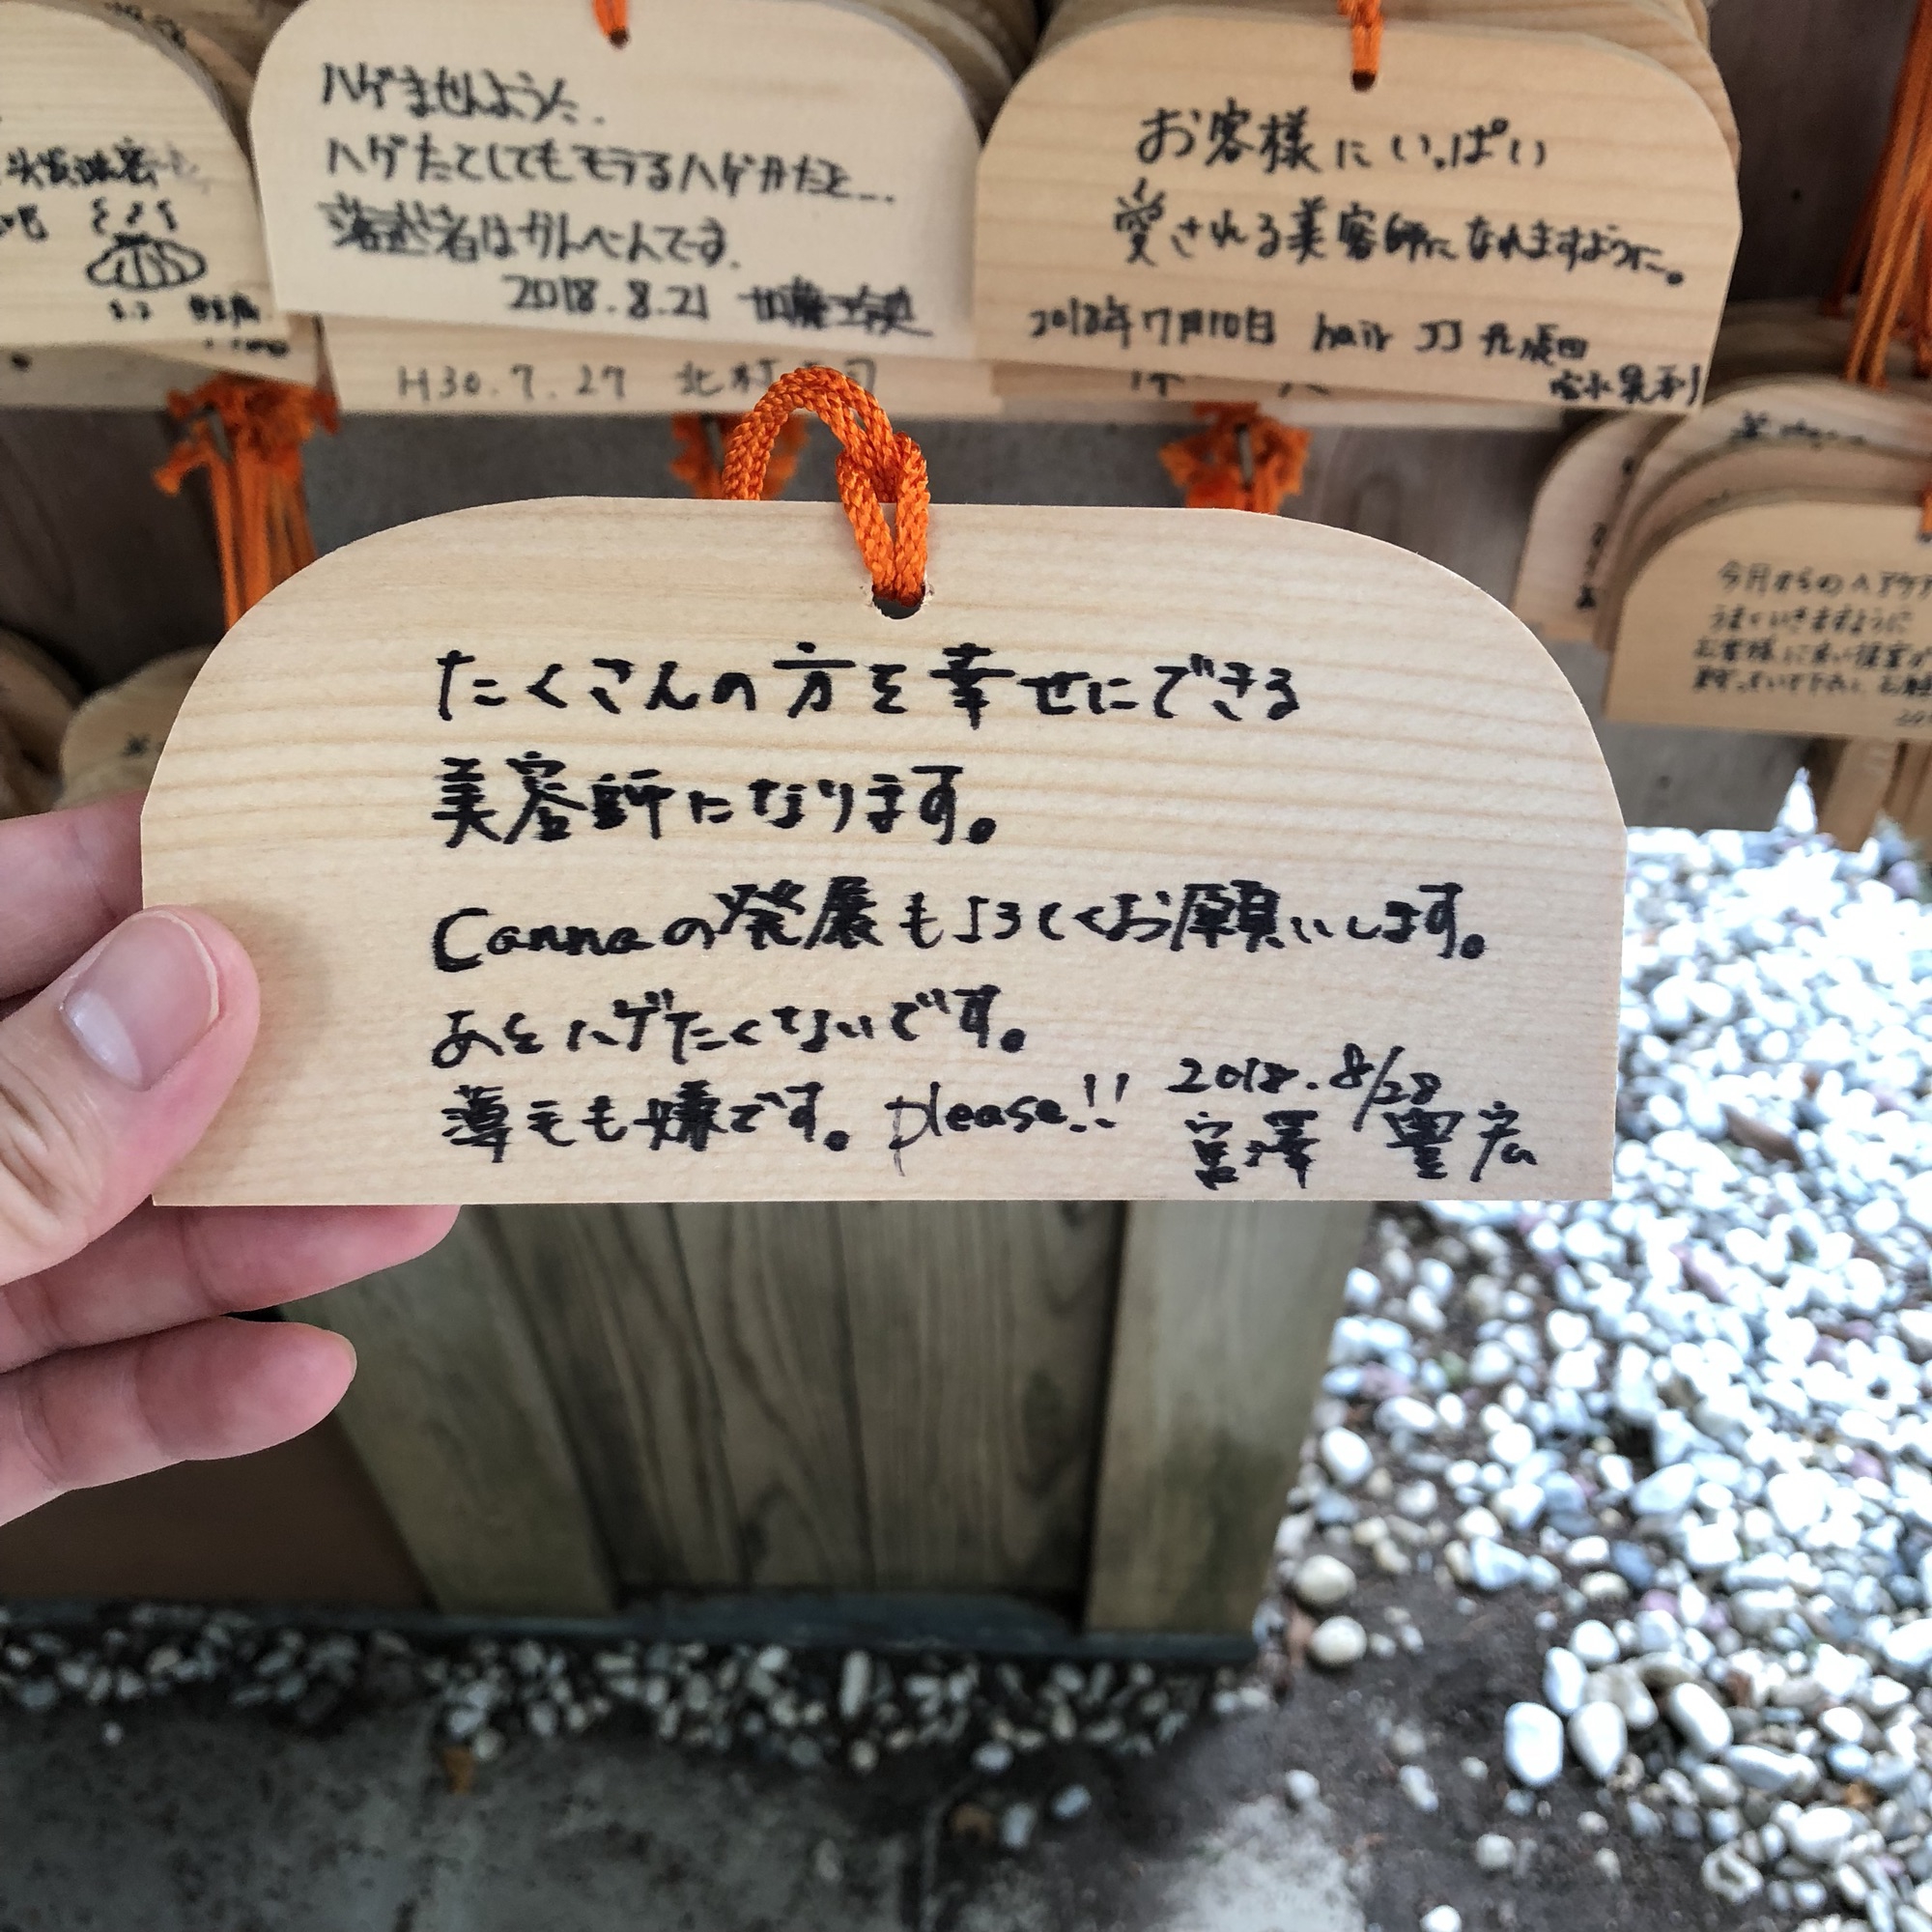 ハゲませんように..
ハゲたとしてもモテるハゲかたを...
落武者はかんべんです.
2018.8.21
H30.7.27 北村
お客様にいっぱい
愛される美容師になれますように。
2018年7月10日 hair JJ
今月からのヘアケア
うまくいきますように
お客様に良い提案が
たくさんの方を幸せにできる
美容師になります。
Cannaの発展もよろしくお願いします。
あとハゲたくないです。
薄毛も嫌です。please!! 2018.8/28
宮澤 豊宏